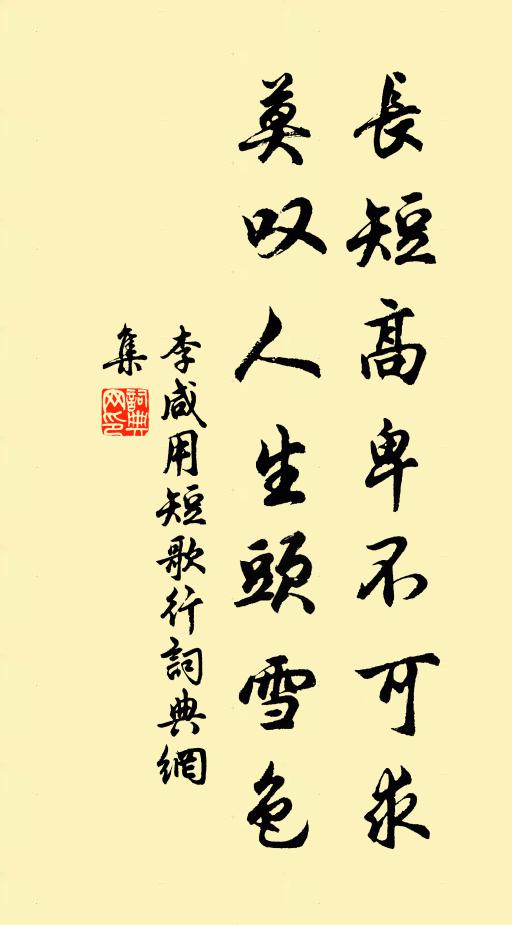 長短高卑不可求
莫叹人生頭雪色
李咸用短歌行詞典網
集
詞典
网印